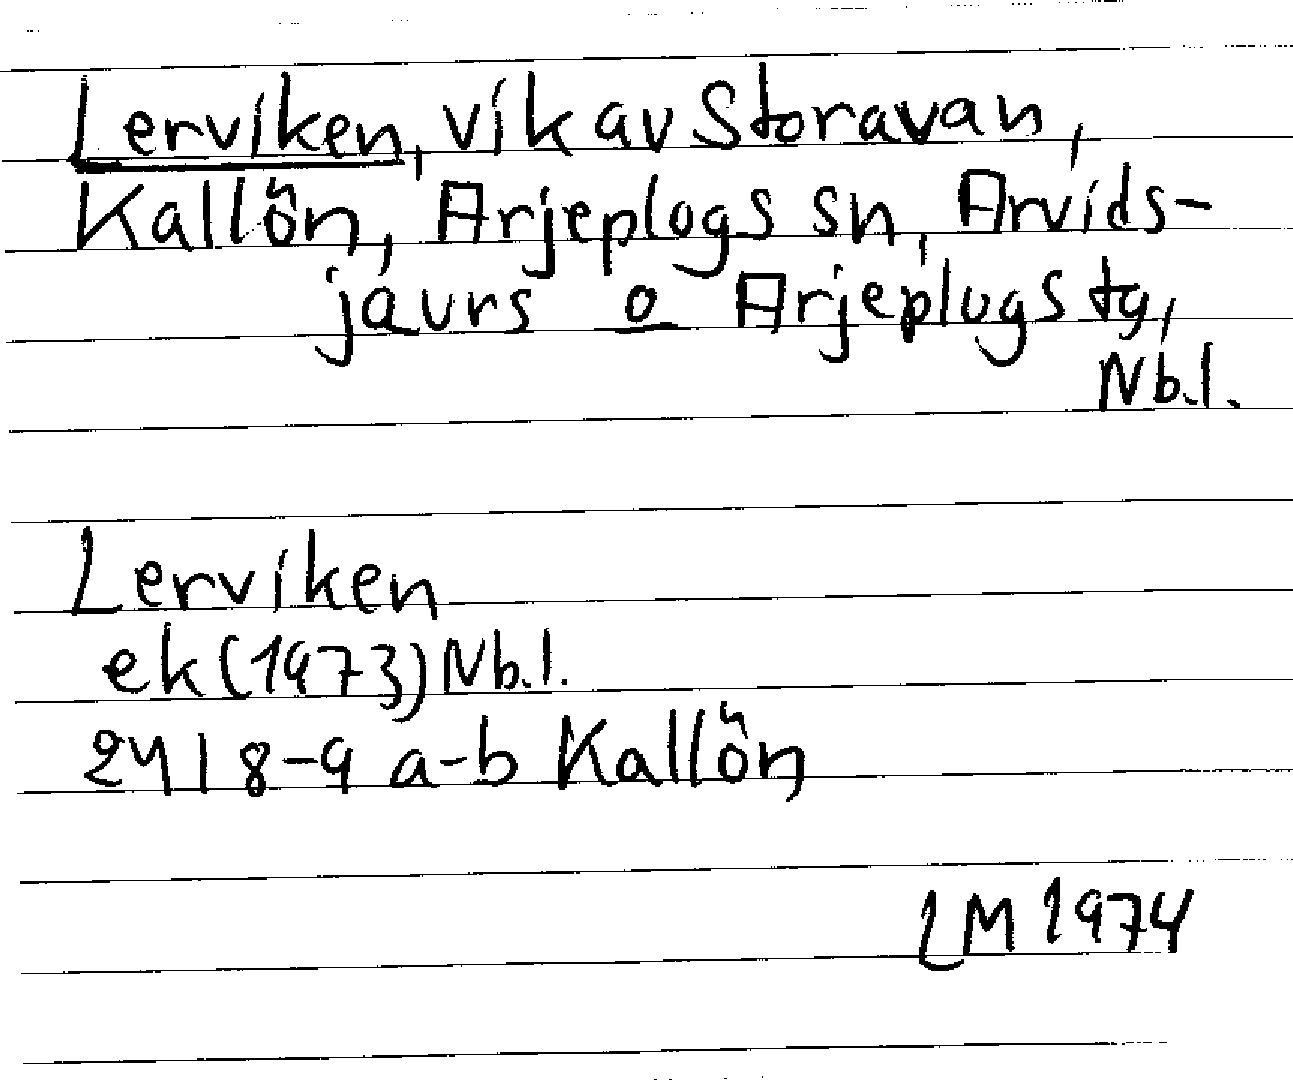 Lerviken, vik av Storavan,
Kallön, Arjeplogs sn, Arvids-
jaurs o Arjeplogs tg,
Nb.l.
Lerviken
ek (1973) Nb.l.
24 I 8-9 a-b Kallön
LM 1974